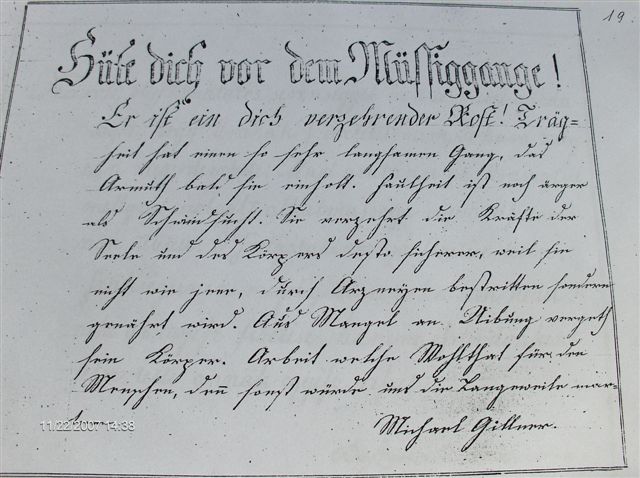 19
Hüte dich vor dem Müssiggange!
Er ist ein dich verzehrender Rost! Träg=
heit hat einen so sehr langsamen Gang, daß
Armuth bald sie einholt. Faulheit ist noch ärger
als Schwindsucht. Sie verzehrt die Kräfte der
Seele und des Körpers desto sicherer, weil sie
nicht wie jene, durch Arzneyen bestritten sondern
genährt wird. Aus Mangel an Uibung vergeth
sein Körper. Arbeit welche Wohlthat für den
Menschen, den̅ sonst würde uns die Langeweile mar=
11/22/2007 14:38
Michael Gillner.